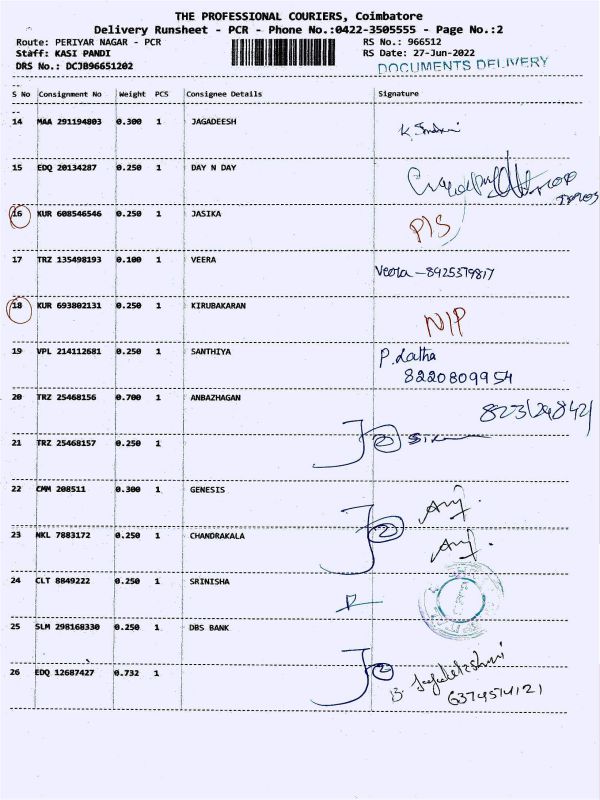 THE PROFESSIONAL COURIERS, Coimbatore
Delivery Runsheet - PCR - Phone No.:0422-3505555 - Page No.:2
Route: PERIYAR NAGAR - PCR RS No.: 966512
Staff: KASI PANDI RS Date: 27-Jun-2022
DRS No.: DCJB96651202 DOCUMENTS DELIVERY
S No Consignment No Weight PCS Consignee Details Signature
14 MAA 291194803 0.300 1 JAGADEESH
15 EDQ 20134287 0.250 1 DAY N DAY
16 KUR 608546546 0.250 1 JASIKA P/S
17 TRZ 135498193 0.100 1 VEERA Veera - 8925379817
18 KUR 693802131 0.250 1 KIRUBAKARAN N/P
19 VPL 214112681 0.250 1 SANTHIYA P. Latha
8220809954
20 TRZ 25468156 0.700 1 ANBAZHAGAN
21 TRZ 25468157 0.250 1 2
22 CMM 208511 0.300 1 GENESIS
23 NKL 7883172 0.250 1 CHANDRAKALA 2
24 CLT 8849222 0.250 1 SRINISHA
25 SLM 298168330 0.250 1 DBS BANK
26 EDQ 12687427 0.732 1 2
6374574121